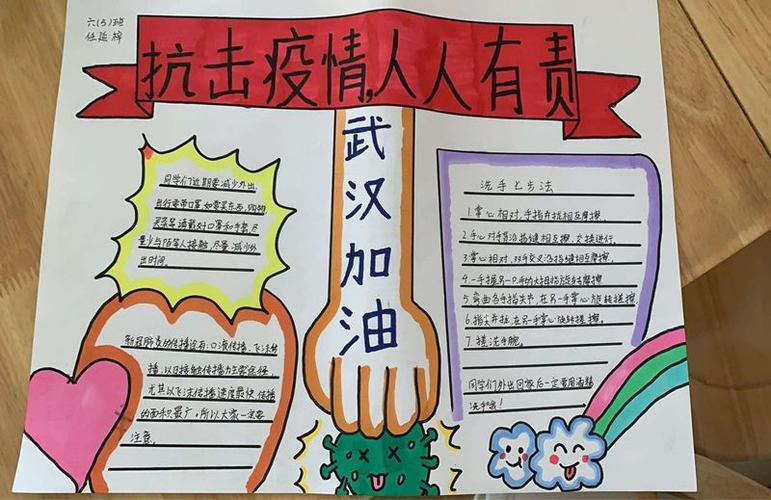 六(5)班
任延梓
抗击疫情,人人有责
武汉加油
同学们近期要减少外出.
出行要带口罩,如需买东西、购物
买菜等,请戴好口罩和手套,尽
量少与陌生人接触,尽量减少外
出时间.
新冠肺炎的传播途径有:口液传播、飞沫传
播,以及接触传播为主要途径,
尤其以飞沫传播速度最快,传播
的面积最广,所以大家一定要
注意.
洗手七步法
1.掌心相对,手指并拢相互摩擦.
2.手心对手背沿指缝相互摩擦,交换进行.
3.掌心相对,双手交叉沿指缝相互摩擦.
4.一手握另一只手的大拇指旋转摩擦.
5.弯曲各手指关节,在另一手掌心旋转搓擦.
6.指尖并拢,在另一手掌心旋转搓擦.
7.搓洗手腕.
同学们外出回家后一定要用
洗手哦!